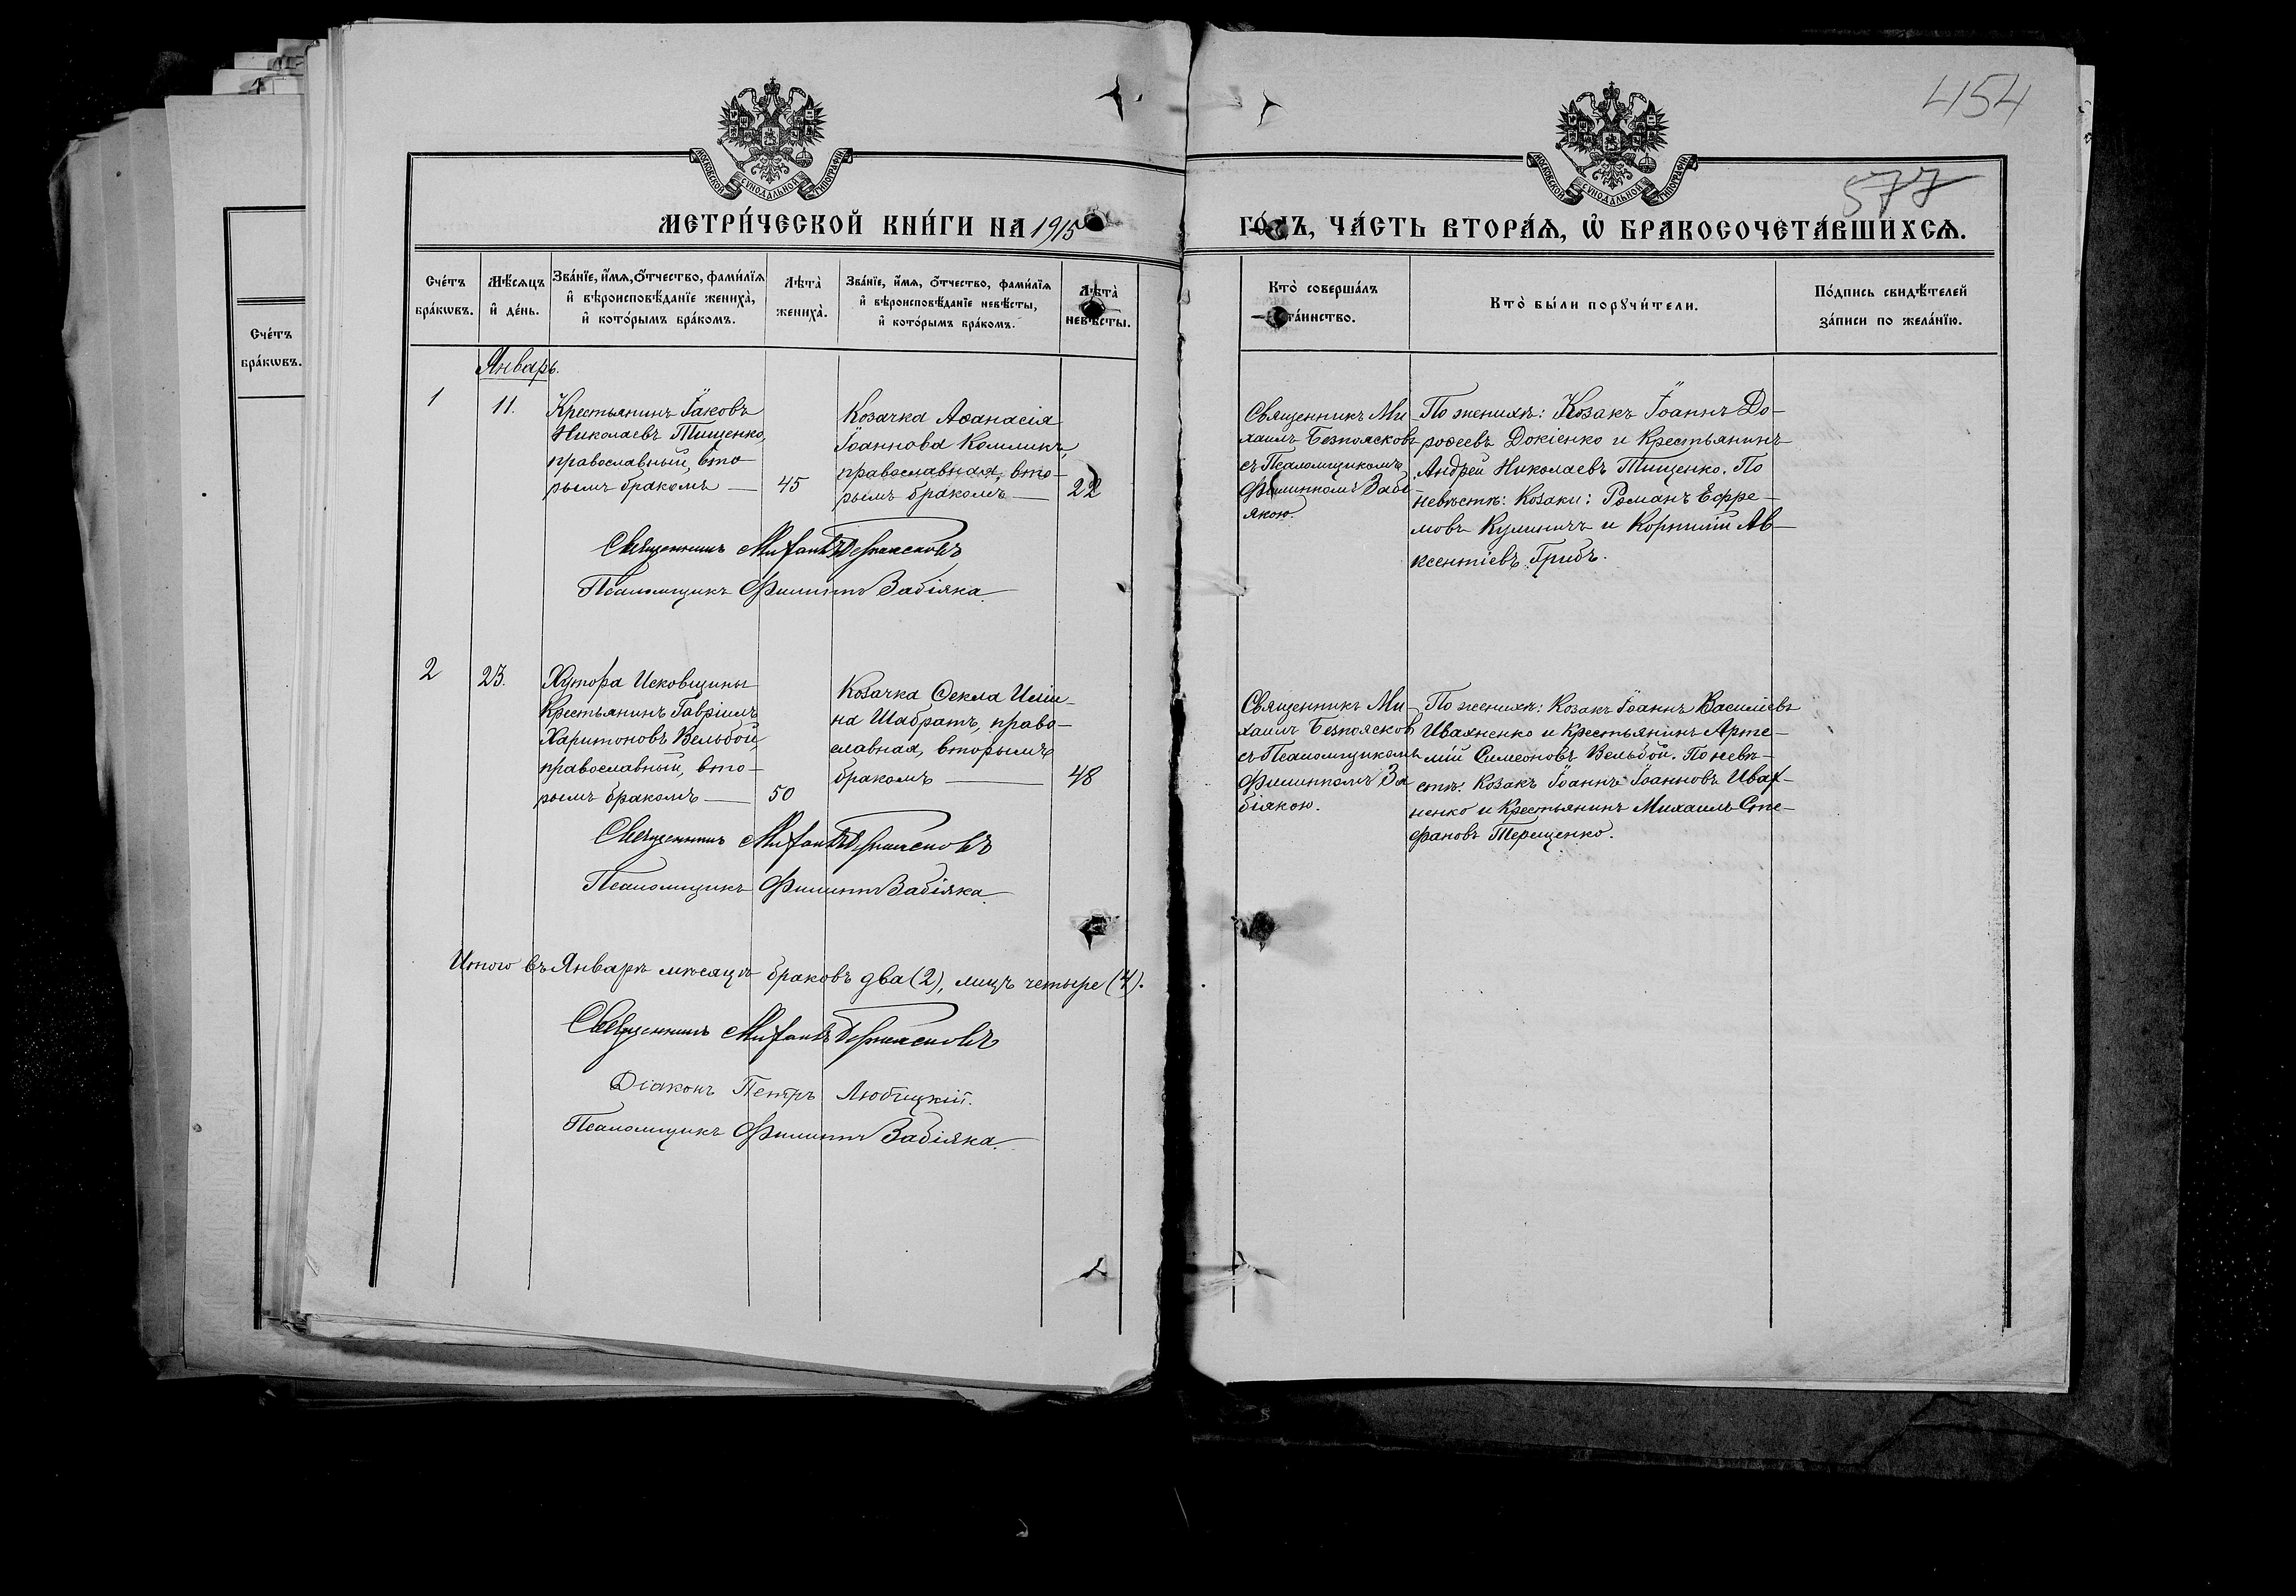 454
577
МОСКОВСКОЙ СУНОДАЛЬНОЙ ТИПОГРАФІИ
МОСКОВСКОЙ СУНОДАЛЬНОЙ ТИПОГРАФІИ
МЕТРИ́ЧЕСКОЙ КНИ́ГИ НА 1915
ГО́ДЪ, ЧА́СТЬ ВТОРА́Ѧ, Ѡ҆ БРАКОСОЧЕТА́ВШИХСѦ.
Сче́тъ
бра́кѡвъ.
Сче́тъ
бра́кѡвъ.
Мѣ́сѧцъ
и҆ де́нь.
Зва́нїе, и҆́мѧ, ѻ҆́тчество, фами́лїѧ
и҆ вѣроисповѣ́данїе жениха̀,
и҆ кото́рымъ бра́комъ.
Лѣта̀
жениха̀.
Зва́нїе, и҆́мѧ, ѻ҆́тчество, фами́лїѧ
и҆ вѣроисповѣ́данїе невѣ́сты,
и҆ кото́рымъ бра́комъ.
Лѣта̀
невѣ́сты.
Кто̀ соверша́лъ
та́инство.
Кто̀ бы́ли порꙋчи́тели.
По́дпись свидѣ́телей
за́писи по жела́нїю.
Январь.
1
11.
Крестьянинъ Їаковъ
Николаевъ Тищенко,
православный, вто-
рымъ бракомъ —
45
Козачка Аѳанасія
Їоаннова Комликъ,
православная, вто-
рымъ бракомъ —
22
Священникъ Ми-
хаилъ Безпоясковъ
съ Псаломщикомъ
Филиппомъ Забі-
якою.
По женихѣ: Козакъ Їоаннъ До-
роѳеевъ Докіенко и Крестьянинъ
Андрей Николаевъ Тищенко. По
невѣстѣ: Козаки: Романъ Ефре-
мовъ Кулиничъ и Корнилій Ав-
ксентіевъ Грибъ.
Священникъ Михаилъ Безпоясковъ
Псаломщикъ Филиппъ Забіяка.
2
23.
Хутора Исковщины
Крестьянинъ Гавріилъ
Харитоновъ Вельбой,
православный, вто-
рымъ бракомъ —
50
Козачка Ѳекла Иліи-
на Шабратъ, право-
славная, вторымъ
бракомъ —
48
Священникъ Ми-
хаилъ Безпоясков
съ Псаломщикомъ
Филиппомъ За
біякою.
По женихѣ: Козакъ Їоаннъ Василіевъ
Ивахненко и Крестьянинъ Арте-
мій Симеоновъ Вельбой. По невѣ-
стѣ: Козакъ Їоаннъ Їоанновъ Ивах-
ненко и Крестьянинъ Михаилъ Сте-
фановъ Терещенко.
Священникъ Михаилъ Безпоясковъ
Псаломщикъ Филиппъ Забіяка.
Итого въ Январѣ мѣсяцѣ браковъ два (2), лицъ четыре (4).
Священникъ Михаилъ Безпоясковъ
Діаконъ Петръ Любицкій.
Псаломщикъ Филиппъ Забіяка.